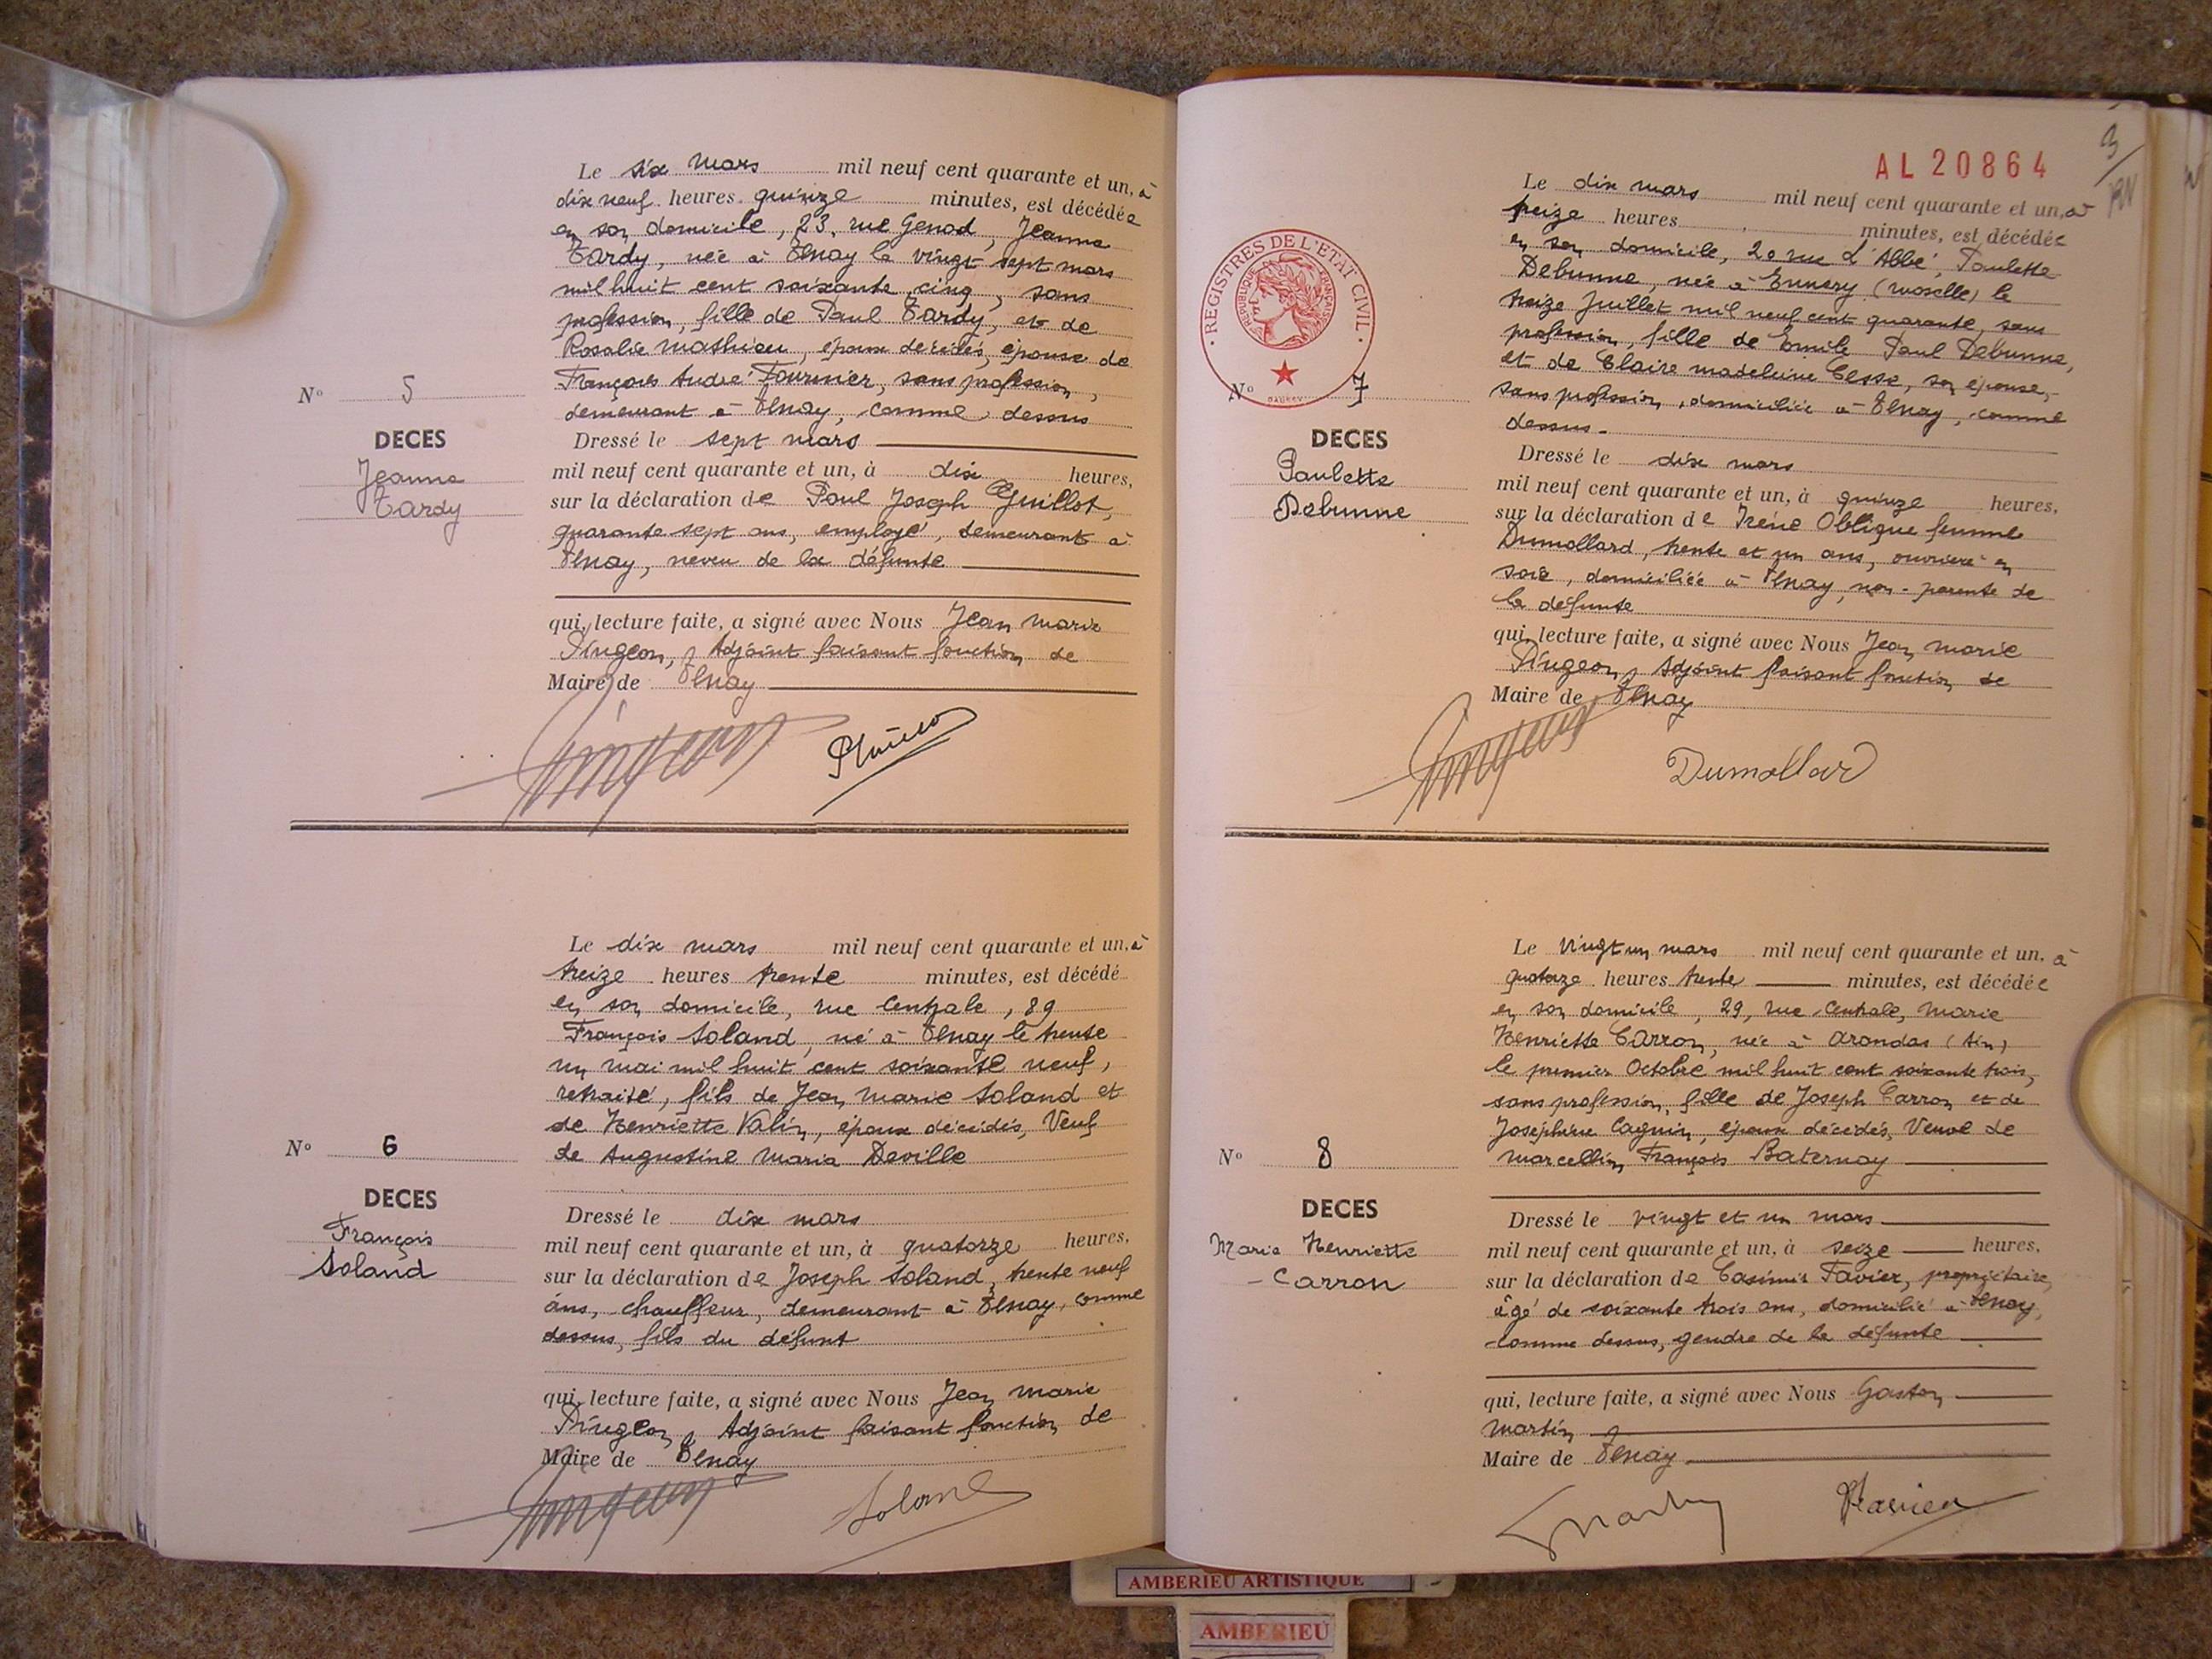 Le six mars mil neuf cent quarante et un, à
dix neuf heures quinze minutes, est décédée
en son domicile, 23, rue Genod, Jeanne
Tardy, née à Tenay le vingt sept mars
mil huit cent soixante cinq, sans
profession, fille de Paul Tardy, et de
Rosalie Mathieu, époux décédés, épouse de
François André Fournier, sans profession,
demeurant à Tenay, comme dessus
N° 5
DECES
Jeanne
Tardy
Dressé le sept mars
mil neuf cent quarante et un, à dix heures,
sur la déclaration de Paul Joseph Guillot,
quarante sept ans, employé, demeurant à
Tenay, neveu de la défunte
qui, lecture faite, a signé avec Nous Jean Marie
Pingeon, Adjoint faisant fonction de
Maire de Tenay
Pingeon
Le dix mars mil neuf cent quarante et un, à
treize heures trente minutes, est décédé
en son domicile, rue Centrale, 89
François Soland, né à Tenay le trente
un mai mil huit cent soixante neuf,
retraité, fils de Jean Marie Soland et
de Henriette Valin, époux décédés, Veuf
de Augustine Maria Deville
N° 6
DECES
François
Soland
Dressé le dix mars
mil neuf cent quarante et un, à quatorze heures,
sur la déclaration de Joseph Soland, trente neuf
ans, chauffeur, demeurant à Tenay, comme
dessus, fils du défunt
qui, lecture faite, a signé avec Nous Jean Marie
Pingeon, Adjoint faisant fonction de
Maire de Tenay
Pingeon Soland
3
AL 20864
Le dix mars mil neuf cent quarante et un, à
treize heures minutes, est décédée
en son domicile, 20 rue L'Abbé, Paulette
Debunne, née à Ennery (Moselle) le
treize juillet mil neuf cent quarante, sans
profession, fille de Emile Paul Debunne,
et de Claire Madeleine Cesse, son épouse,
sans profession, domiciliée à Tenay, comme
dessus.
REGISTRES DE L'ETAT CIVIL
REPUBLIQUE FRANÇAISE
N° 7
DECES
Paulette
Debunne
Dressé le dix mars
mil neuf cent quarante et un, à quinze heures,
sur la déclaration de Irène Oblique femme
Dumollard, trente et un ans, ouvrière en
soie, domiciliée à Tenay, non-parente de
la défunte
qui, lecture faite, a signé avec Nous Jean Marie
Pingeon, Adjoint faisant fonction de
Maire de Tenay
Pingeon Dumollard
Le vingt un mars mil neuf cent quarante et un, à
quatorze heures trente minutes, est décédée
en son domicile, 29, rue Centrale, Marie
Henriette Carron, née à Arandas (Ain)
le premier Octobre mil huit cent soixante trois,
sans profession, fille de Joseph Carron et de
Joséphine Cagnin, époux décédés, Veuve de
Marcellin François Baternay
N° 8
DECES
Marie Henriette
Carron
Dressé le vingt et un mars
mil neuf cent quarante et un, à seize heures,
sur la déclaration de Casimir Favier, propriétaire,
âgé de soixante trois ans, domicilié à Tenay,
comme dessus, gendre de la défunte
qui, lecture faite, a signé avec Nous Gaston
Martin
Maire de Tenay
GMartin Favier
AMBERIEU ARTISTIQUE
AMBERIEU